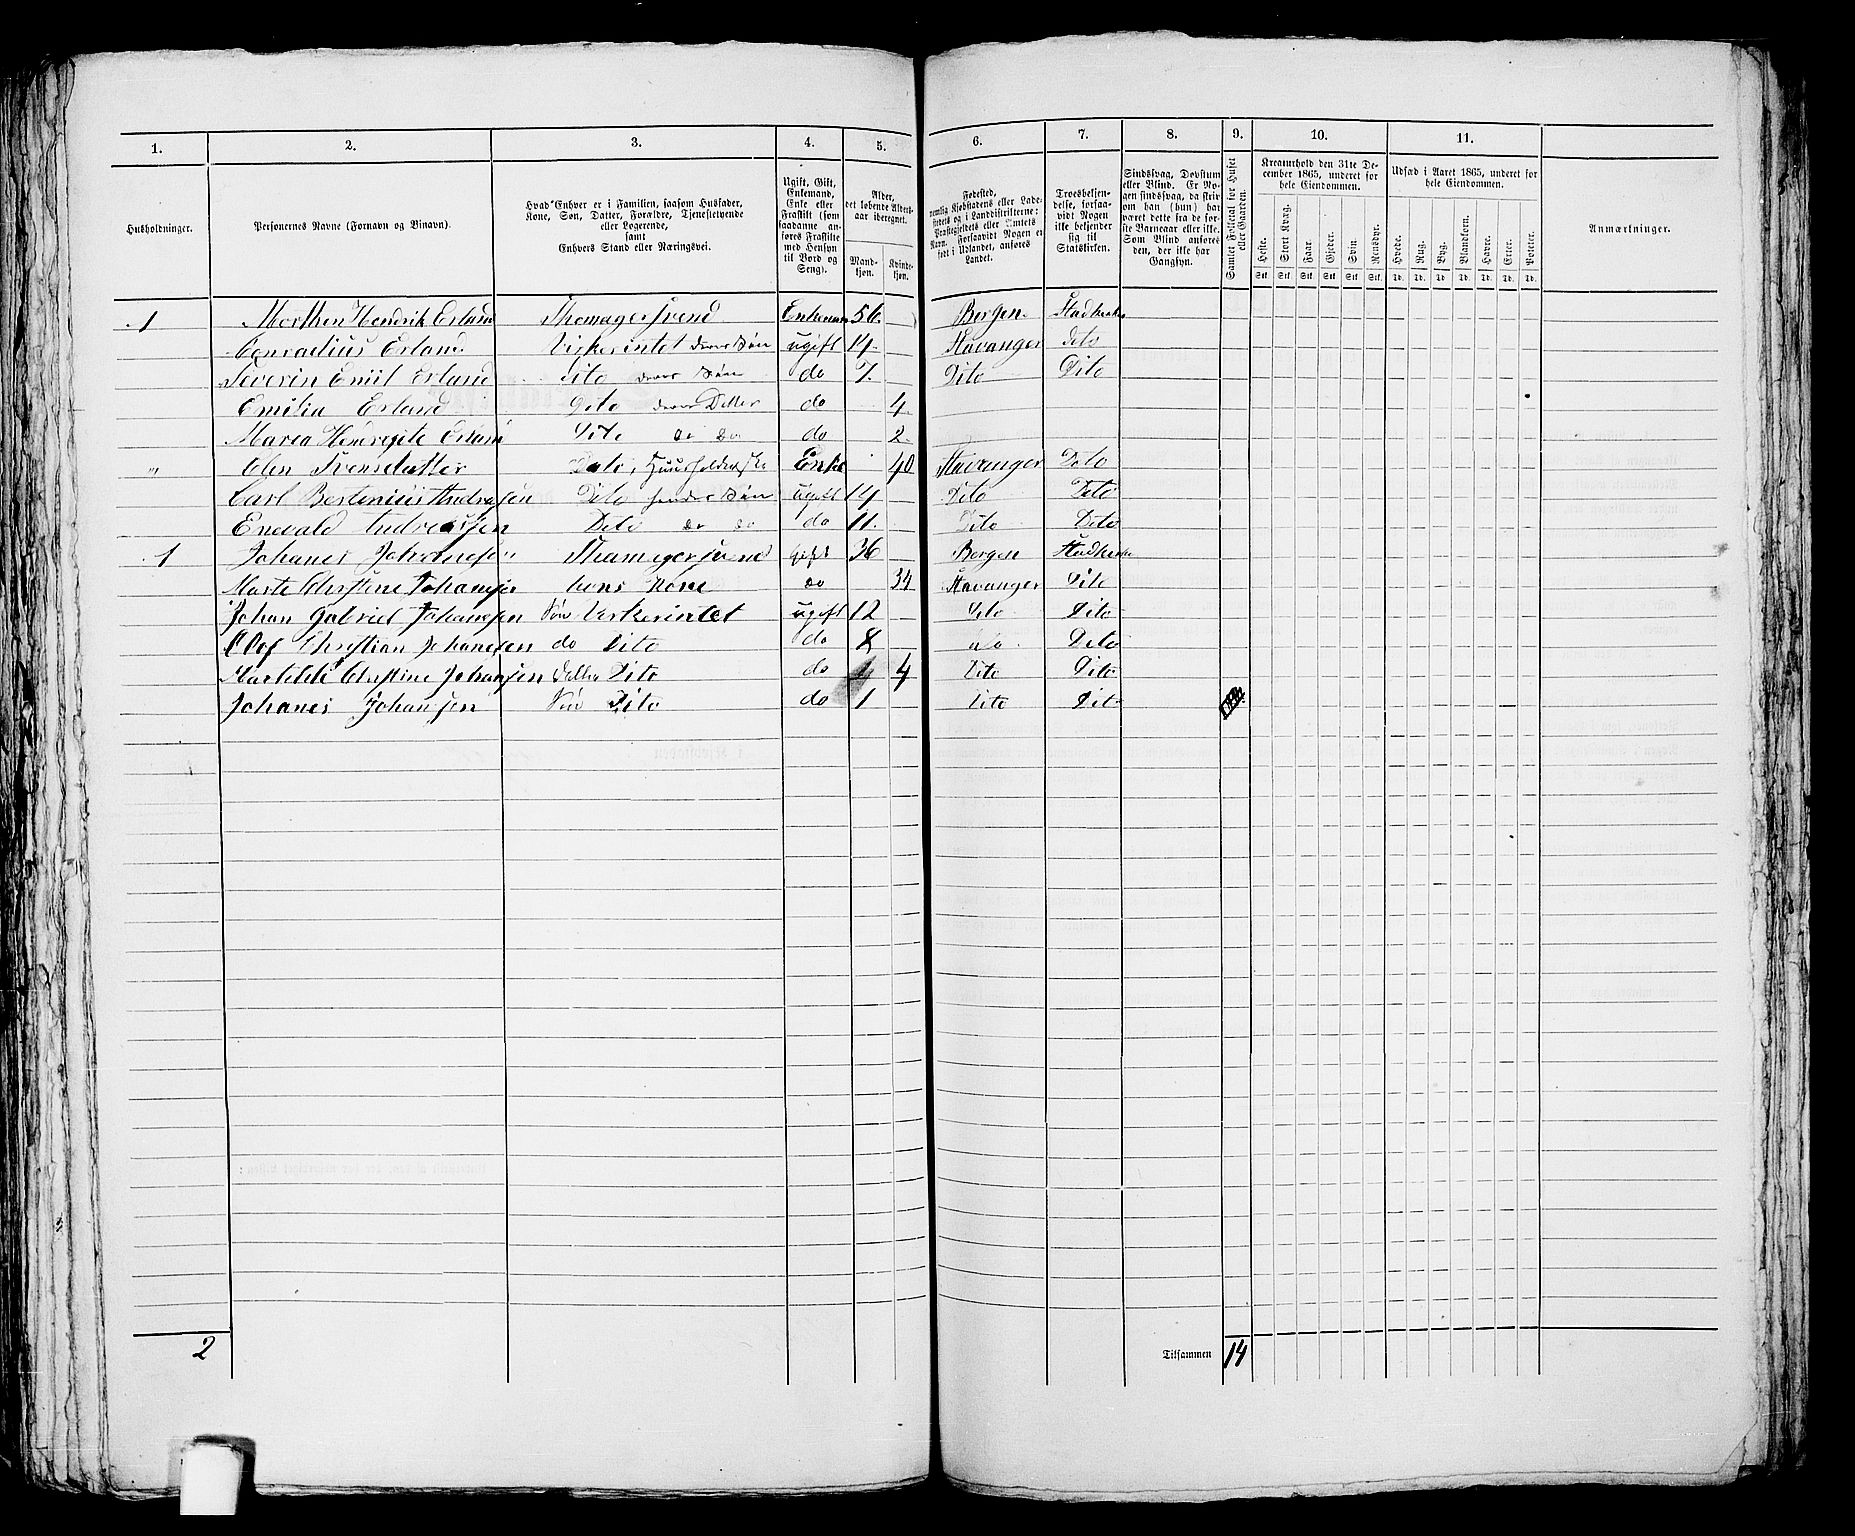 1. 2. 3. 4. 5. 6. 7. 8. 9. 10. 11.
Husholdninger.
Personernes Navne (Fornavn og Binavn).
Hvad Enhver er i Familien, saasom Husfader, Kone, Søn, Datter, Forældre, Tjenestetyende eller Logerende, samt Enhvers Stand eller Næringsvei.
Ugift, Gift, Enkemand, Enke eller Fraskilt (som saadanne anføres Fraskilte med Hensyn til Bord og Seng).
Alder, det løbende Alders-aar iberegnet.
Mand-kjøn. Kvinde-kjøn.
Fødested, nemlig Kjøbstadens eller Ladestedets og i Landdistrikterne: Præstegjeldets eller Amtets Navn. Forsaavidt Nogen er født i Udlandet, anføres Landet.
Troesbekjendelse, forsaavidt Nogen ikke bekjender sig til Statskirken.
Sindssvag, Døvstum eller Blind. Er Nogen sindssvag, da skrives om han (hun) har været dette fra de første Barneaar eller ikke. Som Blind anføres den, der ikke har Gangsyn.
Samlet Folketal for Huset eller Gaarden.
Kreaturhold den 31te December 1865, underet for hele Eiendommen.
Heste. Stort Kvæg. Faar. Gjeder. Svin. Rensdyr.
Stk. Stk. Stk. Stk. Stk. Stk.
Udsæd i Aaret 1865, underet for hele Eiendommen.
Hvede. Rug. Byg. Blandkorn. Havre. Erter. Poteter.
Td. Td. Td. Td. Td. Td. Td.
Anmærkninger.
1 Morthen Hendrik Erland Enkemand 56 Bergen
Conradius Erland Virkerintet deres Søn ugift 14 Stavanger Dito
Severin Emil Erland Dito deres Søn do 7. Dito Dito
Emilia Erland Dito deres do 4
Maren Erland Dito do do do 2.
" Dito, Enke 40 Stavanger Dito
Carl Bertenius Andreasen Dito hendes Søn ugift 14 Dito Dito
Enevald Andreassen Dito do do do 11. Dito Dito
1 Johanes Johannesen gift 36 Bergen
Christine Johanesen hans Kone do 34 Stavanger Dito
Johan Gabriel Johanesen Søn Virkerintet ugift 12 Dito Dito
Olof Christian Johanesen do Dito do 8 do Dito
Christine Johansen Dito do 4 Dito Dito
Johanes Johansen Søn Dito do 1 Dito Dito
2 Tilsammen 14